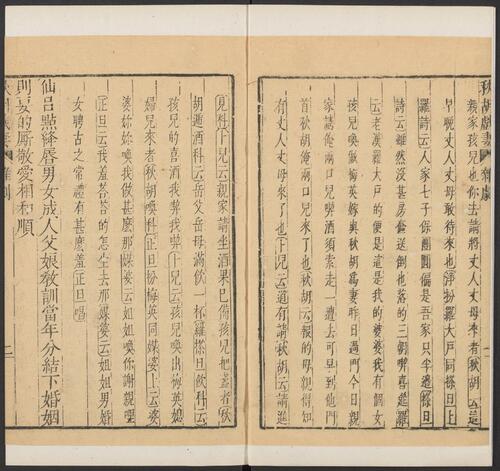 秋胡戲妻 雜劇
親家孩兒也你去請將丈人丈母來者秋胡云這
早晚丈人丈母敢待來也淨扮羅大戶同搽旦上
羅詩云人家七子保團圓偏是吾家只半邊搽旦
詩云雖然沒甚房奩送倒也落的三朝吃喜筵羅
云老漢羅大戶的便是這是我的婆婆我有個女
孩兒喚做梅英嫁與秋胡爲妻昨日過門今日親
家請俺兩口兒吃酒須索走一遭去可早到他門
首秋胡俺兩口兒來了也秋胡云報的母親得知
有丈人丈母來了也卜兒云道有請秋胡云請進
見科卜兒云親家請坐酒果巴備孩兒把盞者秋
胡遞酒科云岳父岳母滿飲一杯羅搽旦飲科云
孩兒的喜酒我吃我吃卜兒云孩兒喚出梅英媳
婦兒來者秋胡喚科正旦扮梅英同媒婆上云婆
婆妳妳喚我做甚麽那媒婆云姐姐喚你謝親哩
正旦云我羞荅荅的怎生去那媒婆云姐姐男婚
女聘古之常禮有甚麽羞正旦唱
仙呂點絳唇男女成人父娘敎訓當年分結下婚姻
則要的廝敬愛相和順
秋胡戲妻 雜劇 二